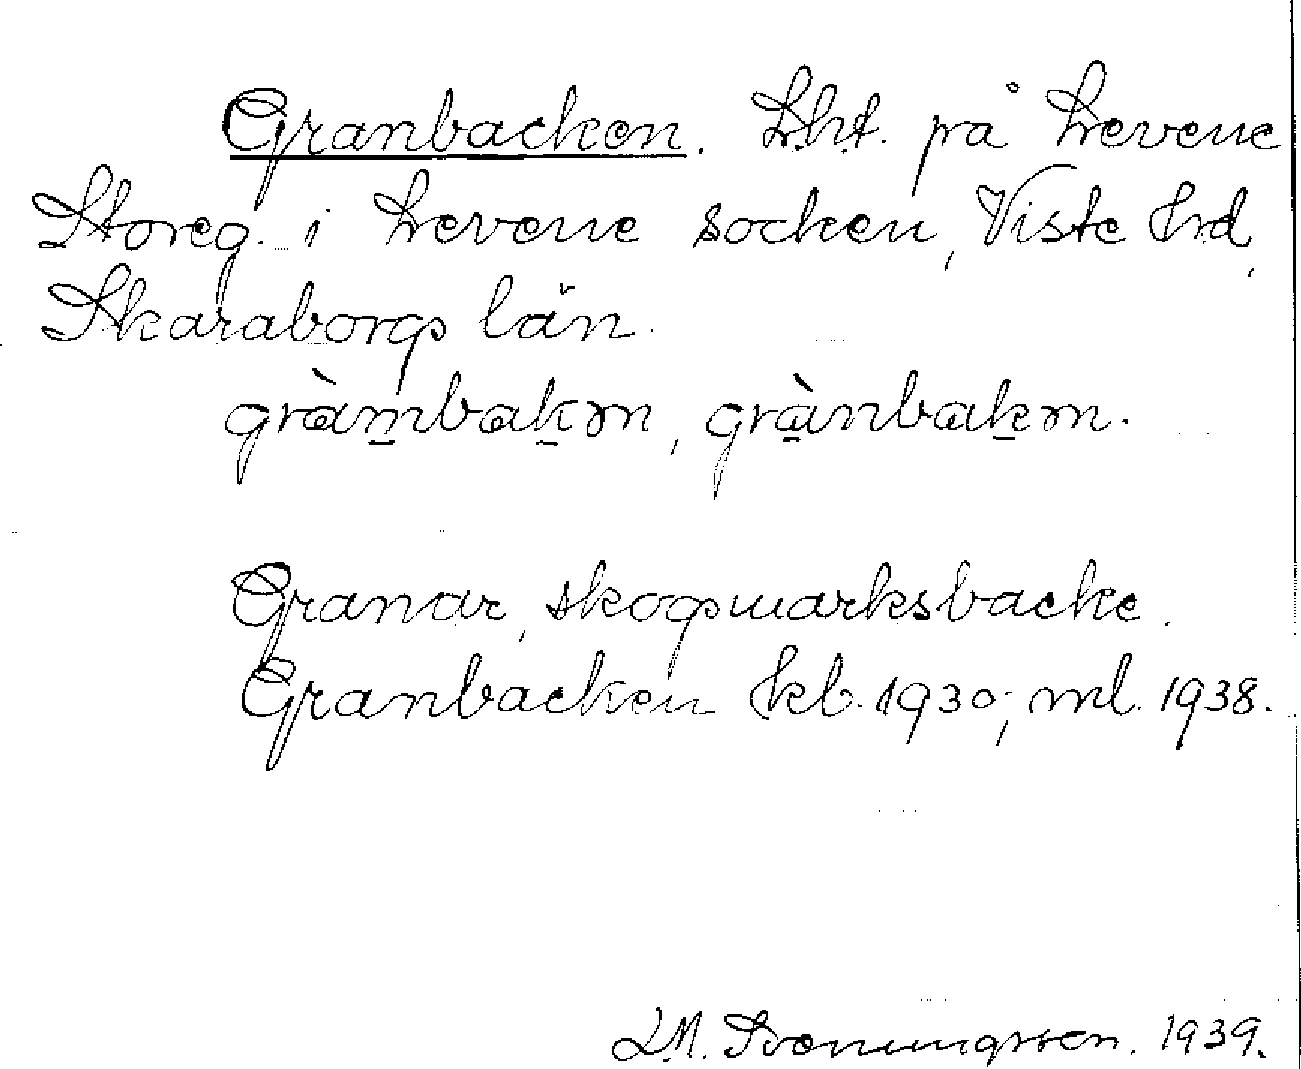 Granbacken. Lht. på Levene
Storeg. i Levene socken, Viste hd,
Skaraborgs län.
gràmbakən, grànbakən.
Granar, skogsmarksbacke.
Granbacken kb. 1930; ml. 1938.
L.M. Svenungsson. 1939.